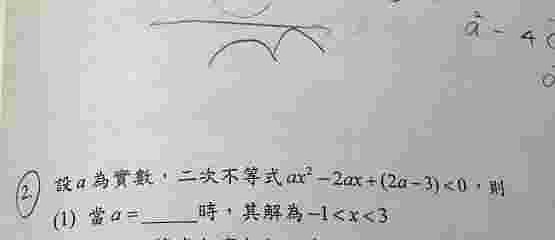 a² - 4
2. 設 a 為實數，二次不等式 ax² - 2ax + (2a - 3) < 0，則
(1) 當 a = ______ 時，其解為 -1 < x < 3